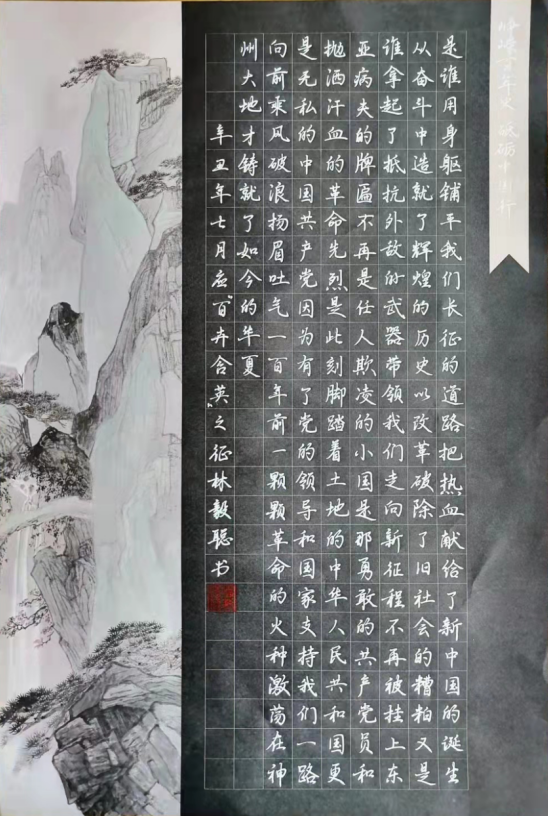 是谁用身躯铺平我们长征的道路把热血献给了新中国的诞生
从奋斗中造就了辉煌的历史以改革破除了旧社会的糟粕又是
谁拿起了抵抗外敌的武器带领我们走向新征程不再被挂上东
亚病夫的牌匾不再是任人欺凌的小国是那勇敢的共产党员和
抛洒汗血的革命先烈是此刻脚踏着土地的中华人民共和国更
是无私的中国共产党因为有了党的领导和国家支持我们一路
向前乘风破浪扬眉吐气一百年前一颗颗革命的火种激荡在神
州大地才铸就了如今的华夏
辛丑年七月应“百卉含英”之征林毅聪书